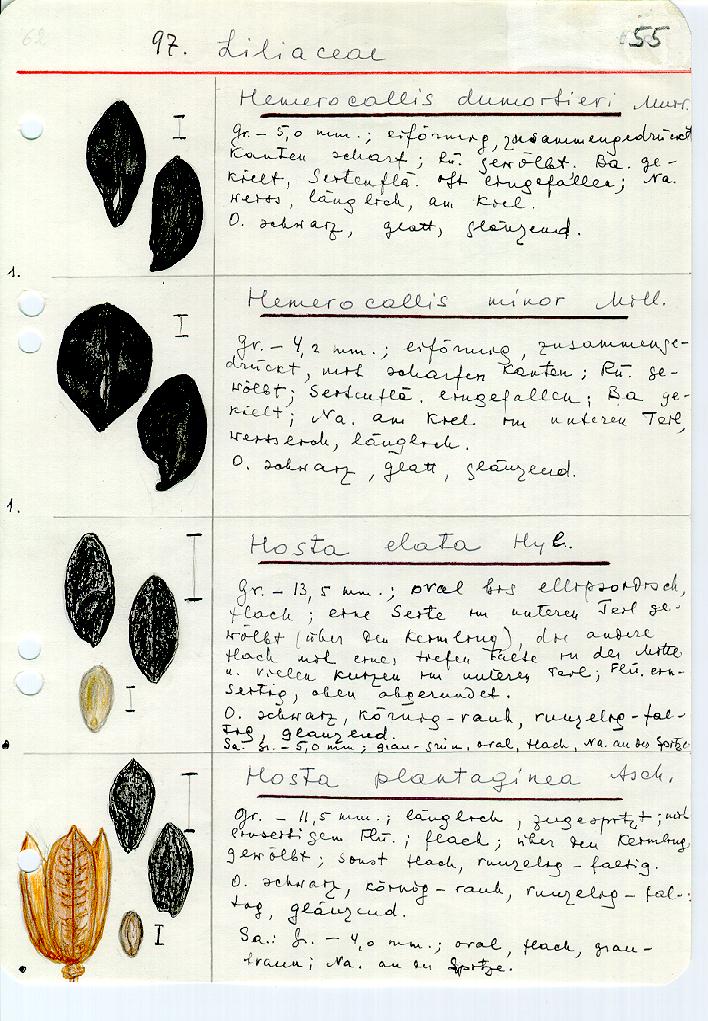 62
97. Liliaceae
55
Hemerocallis dumortieri Morr.
Gr. – 5,0 mm.; eiförmig, zusammengedrückt
Kanten scharf; Rü. gewölbt. Ba. ge-
kielt, Seitenflä. oft eingefallen; Na.
weiss, länglich, am Kiel.
O. schwarz, glatt, glänzend.
1.
Hemerocallis minor Mill.
Gr. – 4,2 mm.; eiförmig, zusammenge-
drückt, mit scharfen Kanten; Rü. ge-
wölbt; Seitenflä. eingefallen; Ba ge-
kielt; Na. am Kiel im unteren Teil,
weisslich, länglich.
O. schwarz, glatt, glänzend.
1.
Hosta elata Hyl.
Gr. – 13,5 mm.; oval bis ellipsoidisch,
flach; eine Seite im unteren Teil ge-
wölbt (über den Keimling), die andere
flach mit einer tiefen Falte in der Mitte
u. vielen kurzen im unteren Teil; Flü. ein-
seitig, oben abgerundet.
O. schwarz, körnig-rauh, runzelig-fal-
tig, glänzend.
Sa. Gr. – 5,0 mm; grau-grün, oval, flach, Na. an der Spitze
Hosta plantaginea Asch.
Gr. – 11,5 mm.; länglich, zugespitzt; mit
einseitigem Flü.; flach; über den Keimling
gewölbt; sonst flach, runzelig-faltig.
O. schwarz, körnig-rauh, runzelig-fal-
tig, glänzend.
Sa.: Gr. – 4,0 mm.; oval, flach, grau-
braun; Na. an der Spitze.